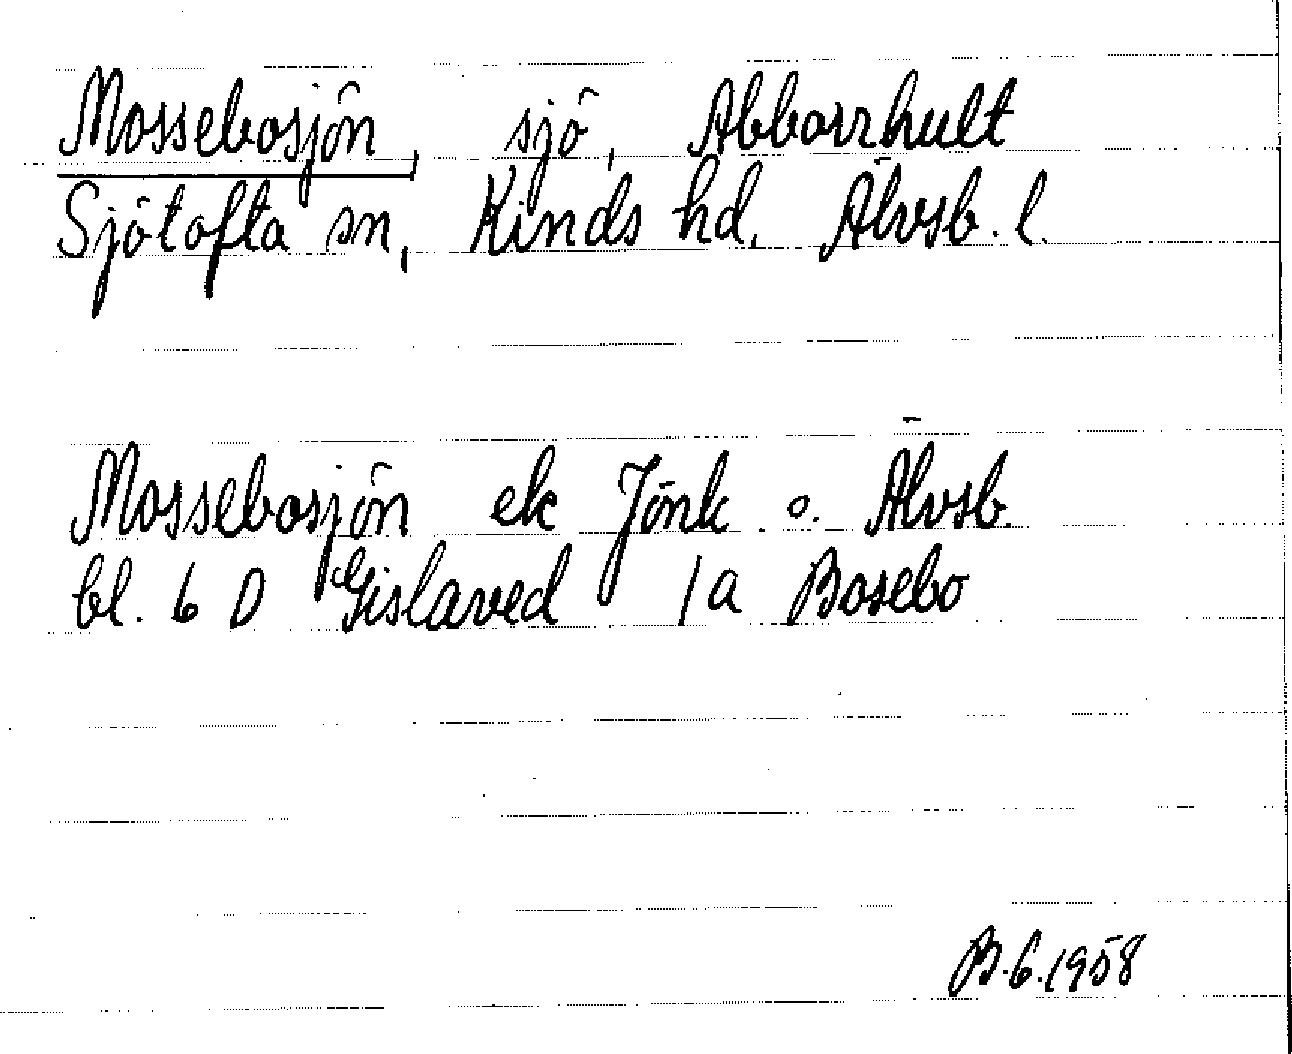 Mossebosjön, sjö, Abborrhult
Sjötofta sn, Kinds hd, Älvsb. l.
Mossebosjön ek Jönk. o. Älvsb.
bl. 6 D Gislaved 1a Bosebo
B.G.1958